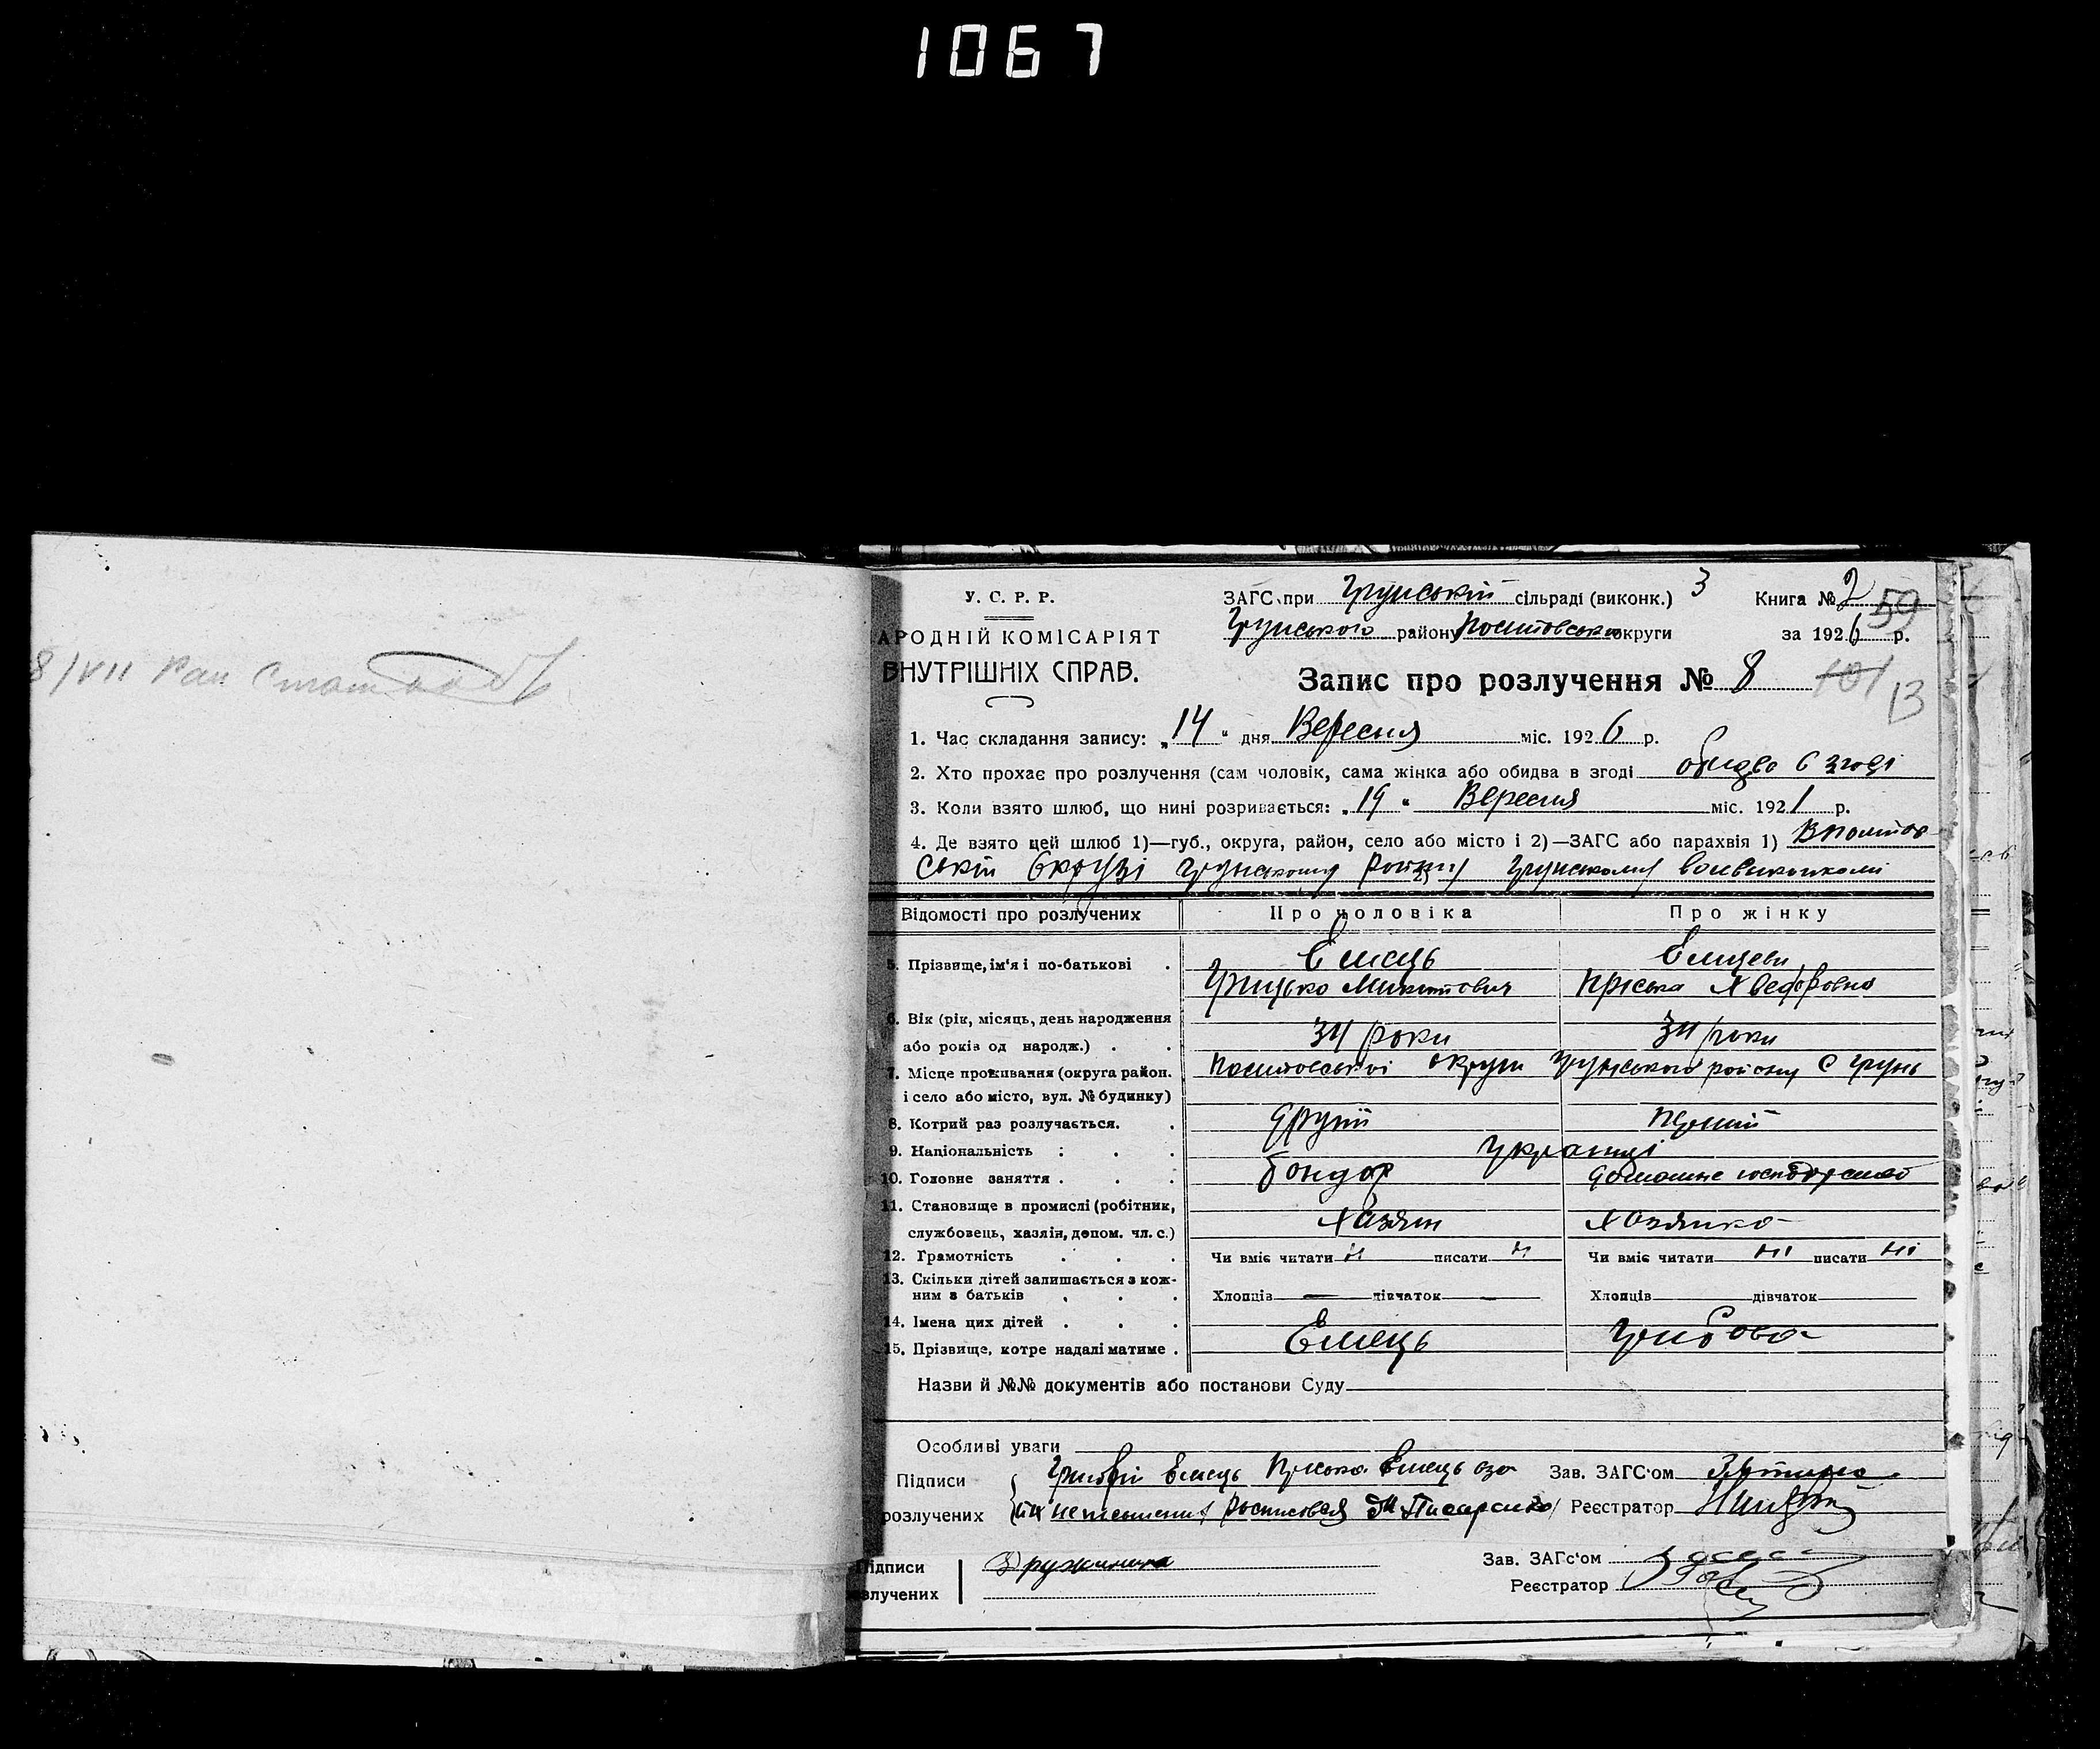 1067
8/VII
У. С. Р. Р.
АРОДНІЙ КОМІСАРІЯТ
ВНУТРІШНІХ СПРАВ.
ЗАГС при Грунській сільраді (виконк.) 3 Книга № 2 59
Грунського району Полтовської округи за 1926 р.
Запис про розлучення № 8 101 13
1. Час складання запису: „14“ дня Вересня міс. 1926 р.
2. Хто прохає про розлучення (сам чоловік, сама жінка або обидва в згоді обидва в згоді
3. Коли взято шлюб, що нині розривається: „19“ Вересня міс. 1921 р.
4. Де взято цей шлюб 1)—губ., округа, район, село або місто і 2)—ЗАГС або парахвія 1) В Полтов
ській Окрузі Грунському Району 2) Грунському
Відомості про розлучених Про чоловіка Про жінку
5. Прізвище, ім'я і по-батькові . Ємець Ємцева
Грицько Микитович Пріська Хведоровна
6. Вік (рік, місяць, день народження
або років од народж.) . . 34 роки 34 роки
7. Місце проживання (округа район. Полтовської округи Грунського району С Грунь
і село або місто, вул. № будинку)
8. Котрий раз розлучається. . другий перший
9. Національність : . . Українці
10. Головне заняття . . . бондар домашне господарство
11. Становище в промислі (робітник,
службовець, хазяїн, допом. чл. с.) Хазяїн Хозяйка
12. Грамотність . . . Чи вміє читати писати Чи вміє читати ні писати ні
13. Скільки дітей залишається з кож-
ним з батьків . . . Хлопців — дівчаток — Хлопців дівчаток
14. Імена цих дітей . . .
15. Прізвище, котре надалі матиме . Ємець
Назви й №№ документів або постанови Суду
Особливі уваги
Підписи Григорій Ємець Пріська Ємець оза Зав. ЗАГС'ом
розлучених їх неписьмени росписовся Писаренко Реєстратор
Підписи Дружинина Зав. ЗАГс'ом
злучених Реєстратор